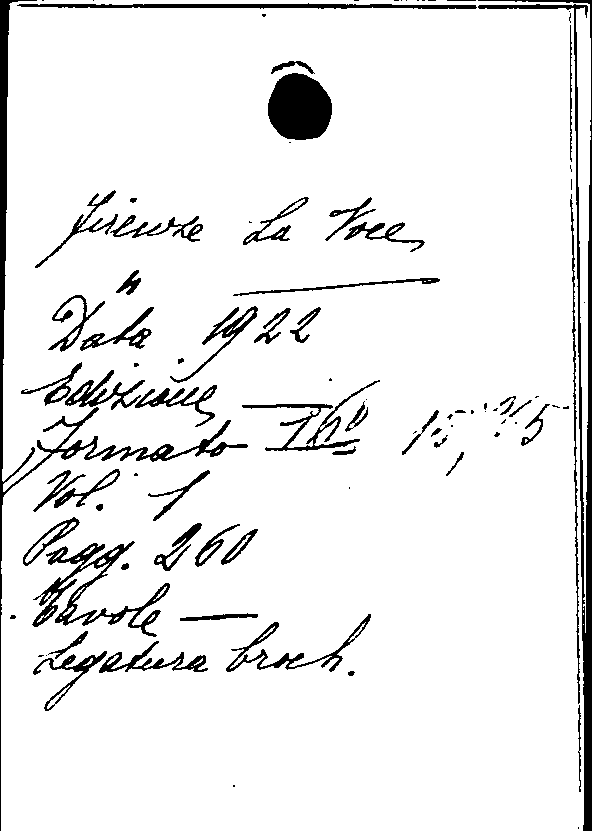 Firenze La Voce
" ———
Data 1922
Edizione ———
Formato 16º 15,
Vol. 1
Pagg. 260
Tavole —
Legatura broch.